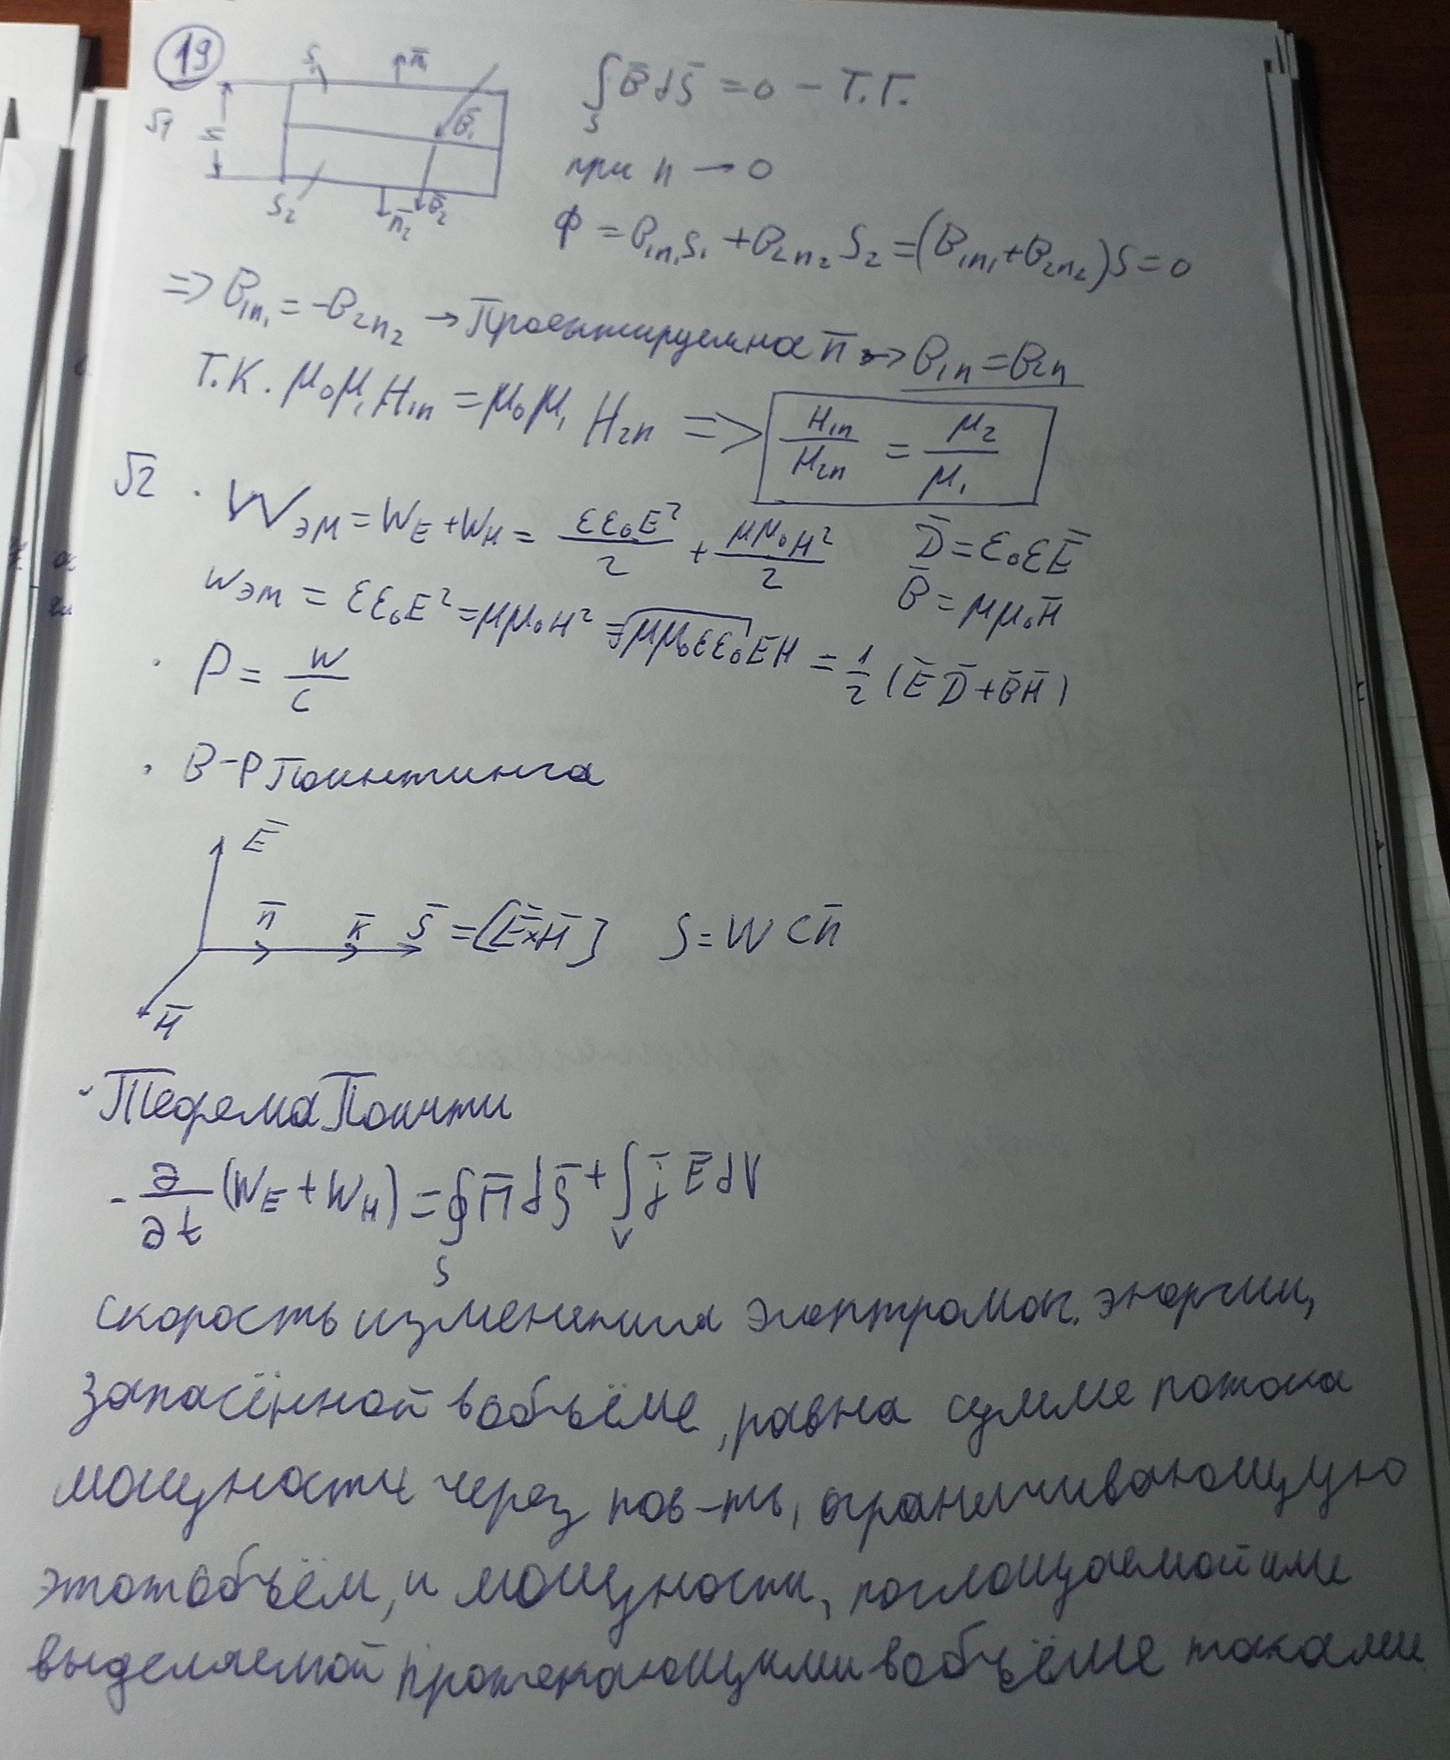 19
S₁ n̄₁
√1 h B̄₁
S₂ n̄₂ B̄₂
∫ₛ B̄ dS̄ = 0 – Т.Г.
при h → 0
Ф = B₁ₙ₁S₁ + B₂ₙ₂S₂ = (B₁ₙ₁ + B₂ₙ₂)S = 0
=> B₁ₙ₁ = -B₂ₙ₂ → Проектируем на n̄ → B₁ₙ = B₂ₙ
Т.К. μ₀μ₁H₁ₙ = μ₀μ₁ H₂ₙ => H₁ₙ/H₂ₙ = μ₂/μ₁
√2 · Wэм = WE + WH = εε₀E²/2 + μμ₀H²/2 D̄ = ε₀εĒ
B̄ = μμ₀H̄
wэм = εε₀E² = μμ₀H² = √(μμ₀εε₀) EH = 1/2 (Ē D̄ + B̄H̄)
· P = W/C
· В-р Поинтинга
Ē
n̄ k̄ S̄ = [Ē×H̄] S = W C n̄
H̄
· Теорема Поинти
- ∂/∂t (WE + WH) = ∮ₛ П̄ dS̄ + ∫ᵥ j̄ Ē dV
скорость изменения электромаг. энергии,
запасённой в объёме, равна сумме потока
мощности через пов-ть, ограничивающую
этот объём, и мощности, поглощаемой или
выделяемой протекающими в объёме токами